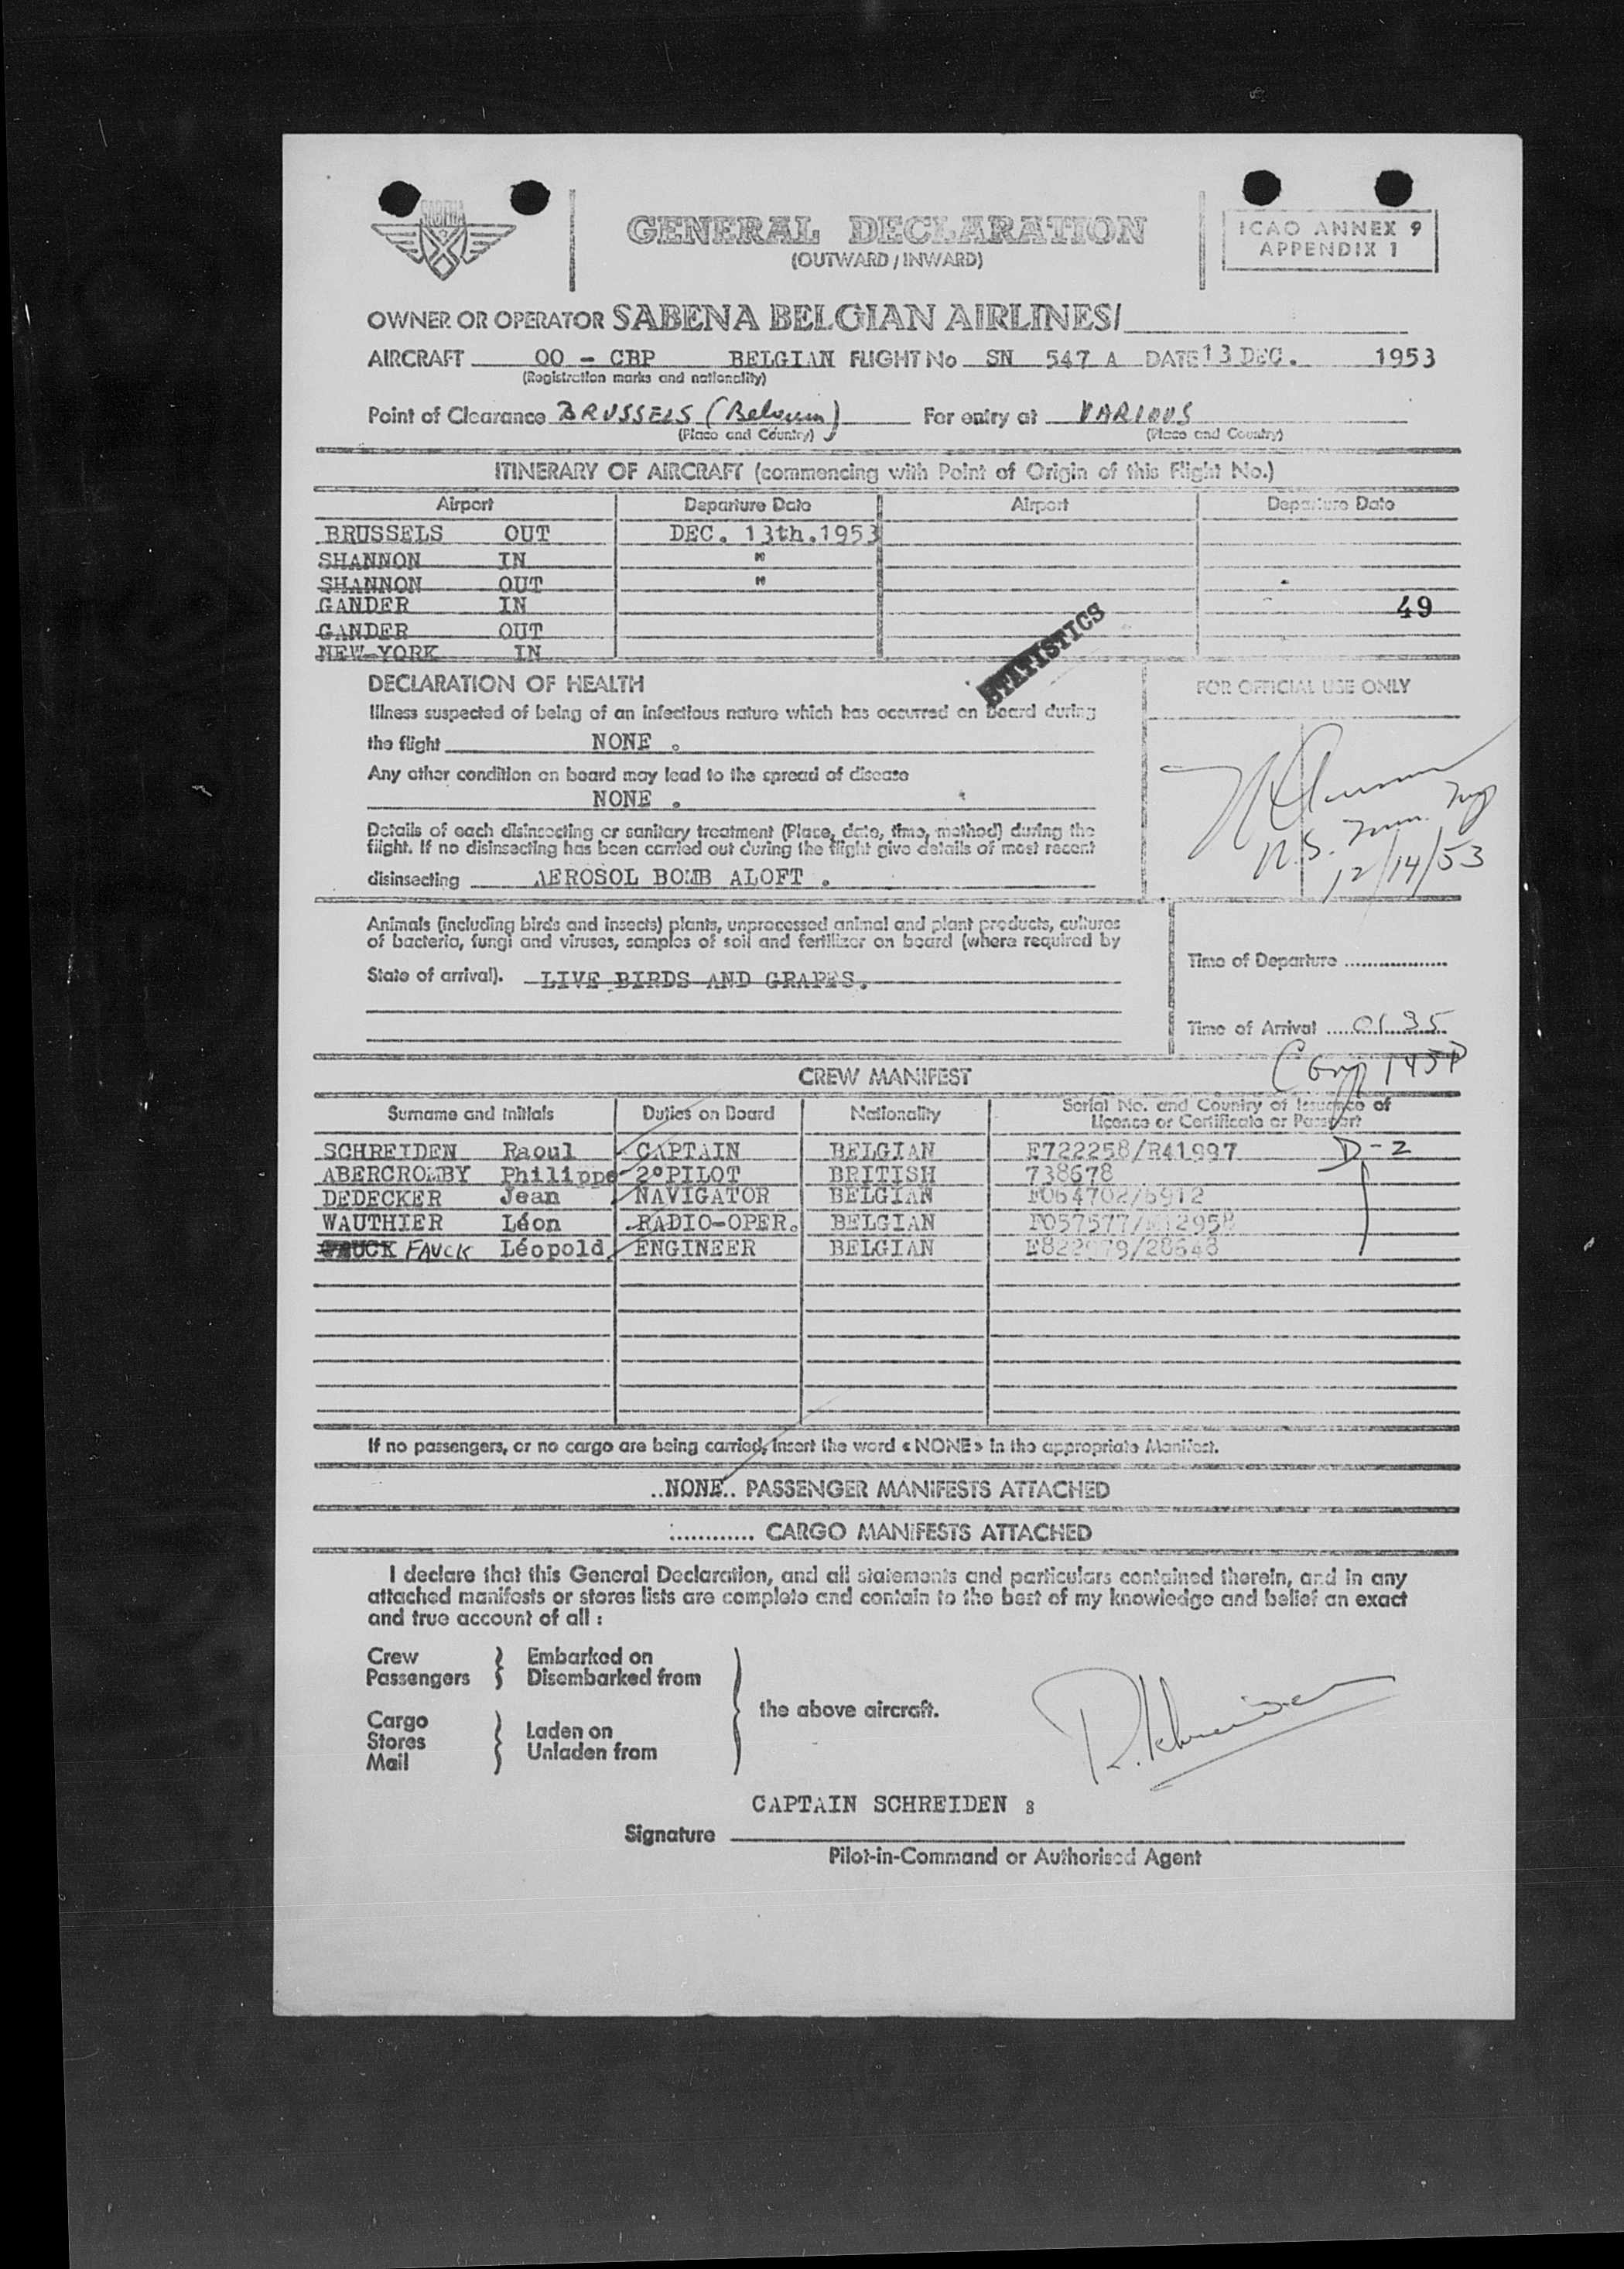 SABENA
GENERAL DECLARATION
(OUTWARD / INWARD)
ICAO ANNEX 9
APPENDIX 1
OWNER OR OPERATOR SABENA BELGIAN AIRLINES/
AIRCRAFT OO - CBP BELGIAN FLIGHT No SN 547 A DATE 13 DEC. 1953
(Registration marks and nationality)
Point of Clearance BRUSSELS (Belgium) For entry at VARIOUS
(Place and Country) (Place and Country)
ITINERARY OF AIRCRAFT (commencing with Point of Origin of this Flight No.)
Airport Departure Date Airport Departure Date
BRUSSELS OUT DEC. 13th.1953
SHANNON IN "
SHANNON OUT "
GANDER IN 49
GANDER OUT
NEW-YORK IN
STATISTICS
DECLARATION OF HEALTH
FOR OFFICIAL USE ONLY
Illness suspected of being of an infectious nature which has occurred on board during
the flight NONE .
Any other condition on board may lead to the spread of disease
NONE .
Details of each disinsecting or sanitary treatment (Place, date, time, method) during the
flight. If no disinsecting has been carried out during the flight give details of most recent
disinsecting AEROSOL BOMB ALOFT .
12/14/53
Animals (including birds and insects) plants, unprocessed animal and plant products, cultures
of bacteria, fungi and viruses, samples of soil and fertilizer on board (where required by
State of arrival). LIVE BIRDS AND GRAPES.
Time of Departure
Time of Arrival 0135
CREW MANIFEST
Surname and Initials Duties on Board Nationality Serial No. and Country of Issuance of
Licence or Certificate or Passport
SCHREIDEN Raoul CAPTAIN BELGIAN E722258/R41997 D-2
ABERCROMBY Philippe 2°PILOT BRITISH 738678
DEDECKER Jean NAVIGATOR BELGIAN F064702/6912
WAUTHIER Léon RADIO-OPER. BELGIAN
FAUCK Léopold ENGINEER BELGIAN
If no passengers, or no cargo are being carried, insert the word « NONE » in the appropriate Manifest.
..NONE.. PASSENGER MANIFESTS ATTACHED
............ CARGO MANIFESTS ATTACHED
I declare that this General Declaration, and all statements and particulars contained therein, and in any
attached manifests or stores lists are complete and contain to the best of my knowledge and belief an exact
and true account of all :
Crew
Passengers
Embarked on
Disembarked from
Cargo
Stores
Mail
Laden on
Unladen from
the above aircraft.
CAPTAIN SCHREIDEN :
Signature
Pilot-in-Command or Authorised Agent